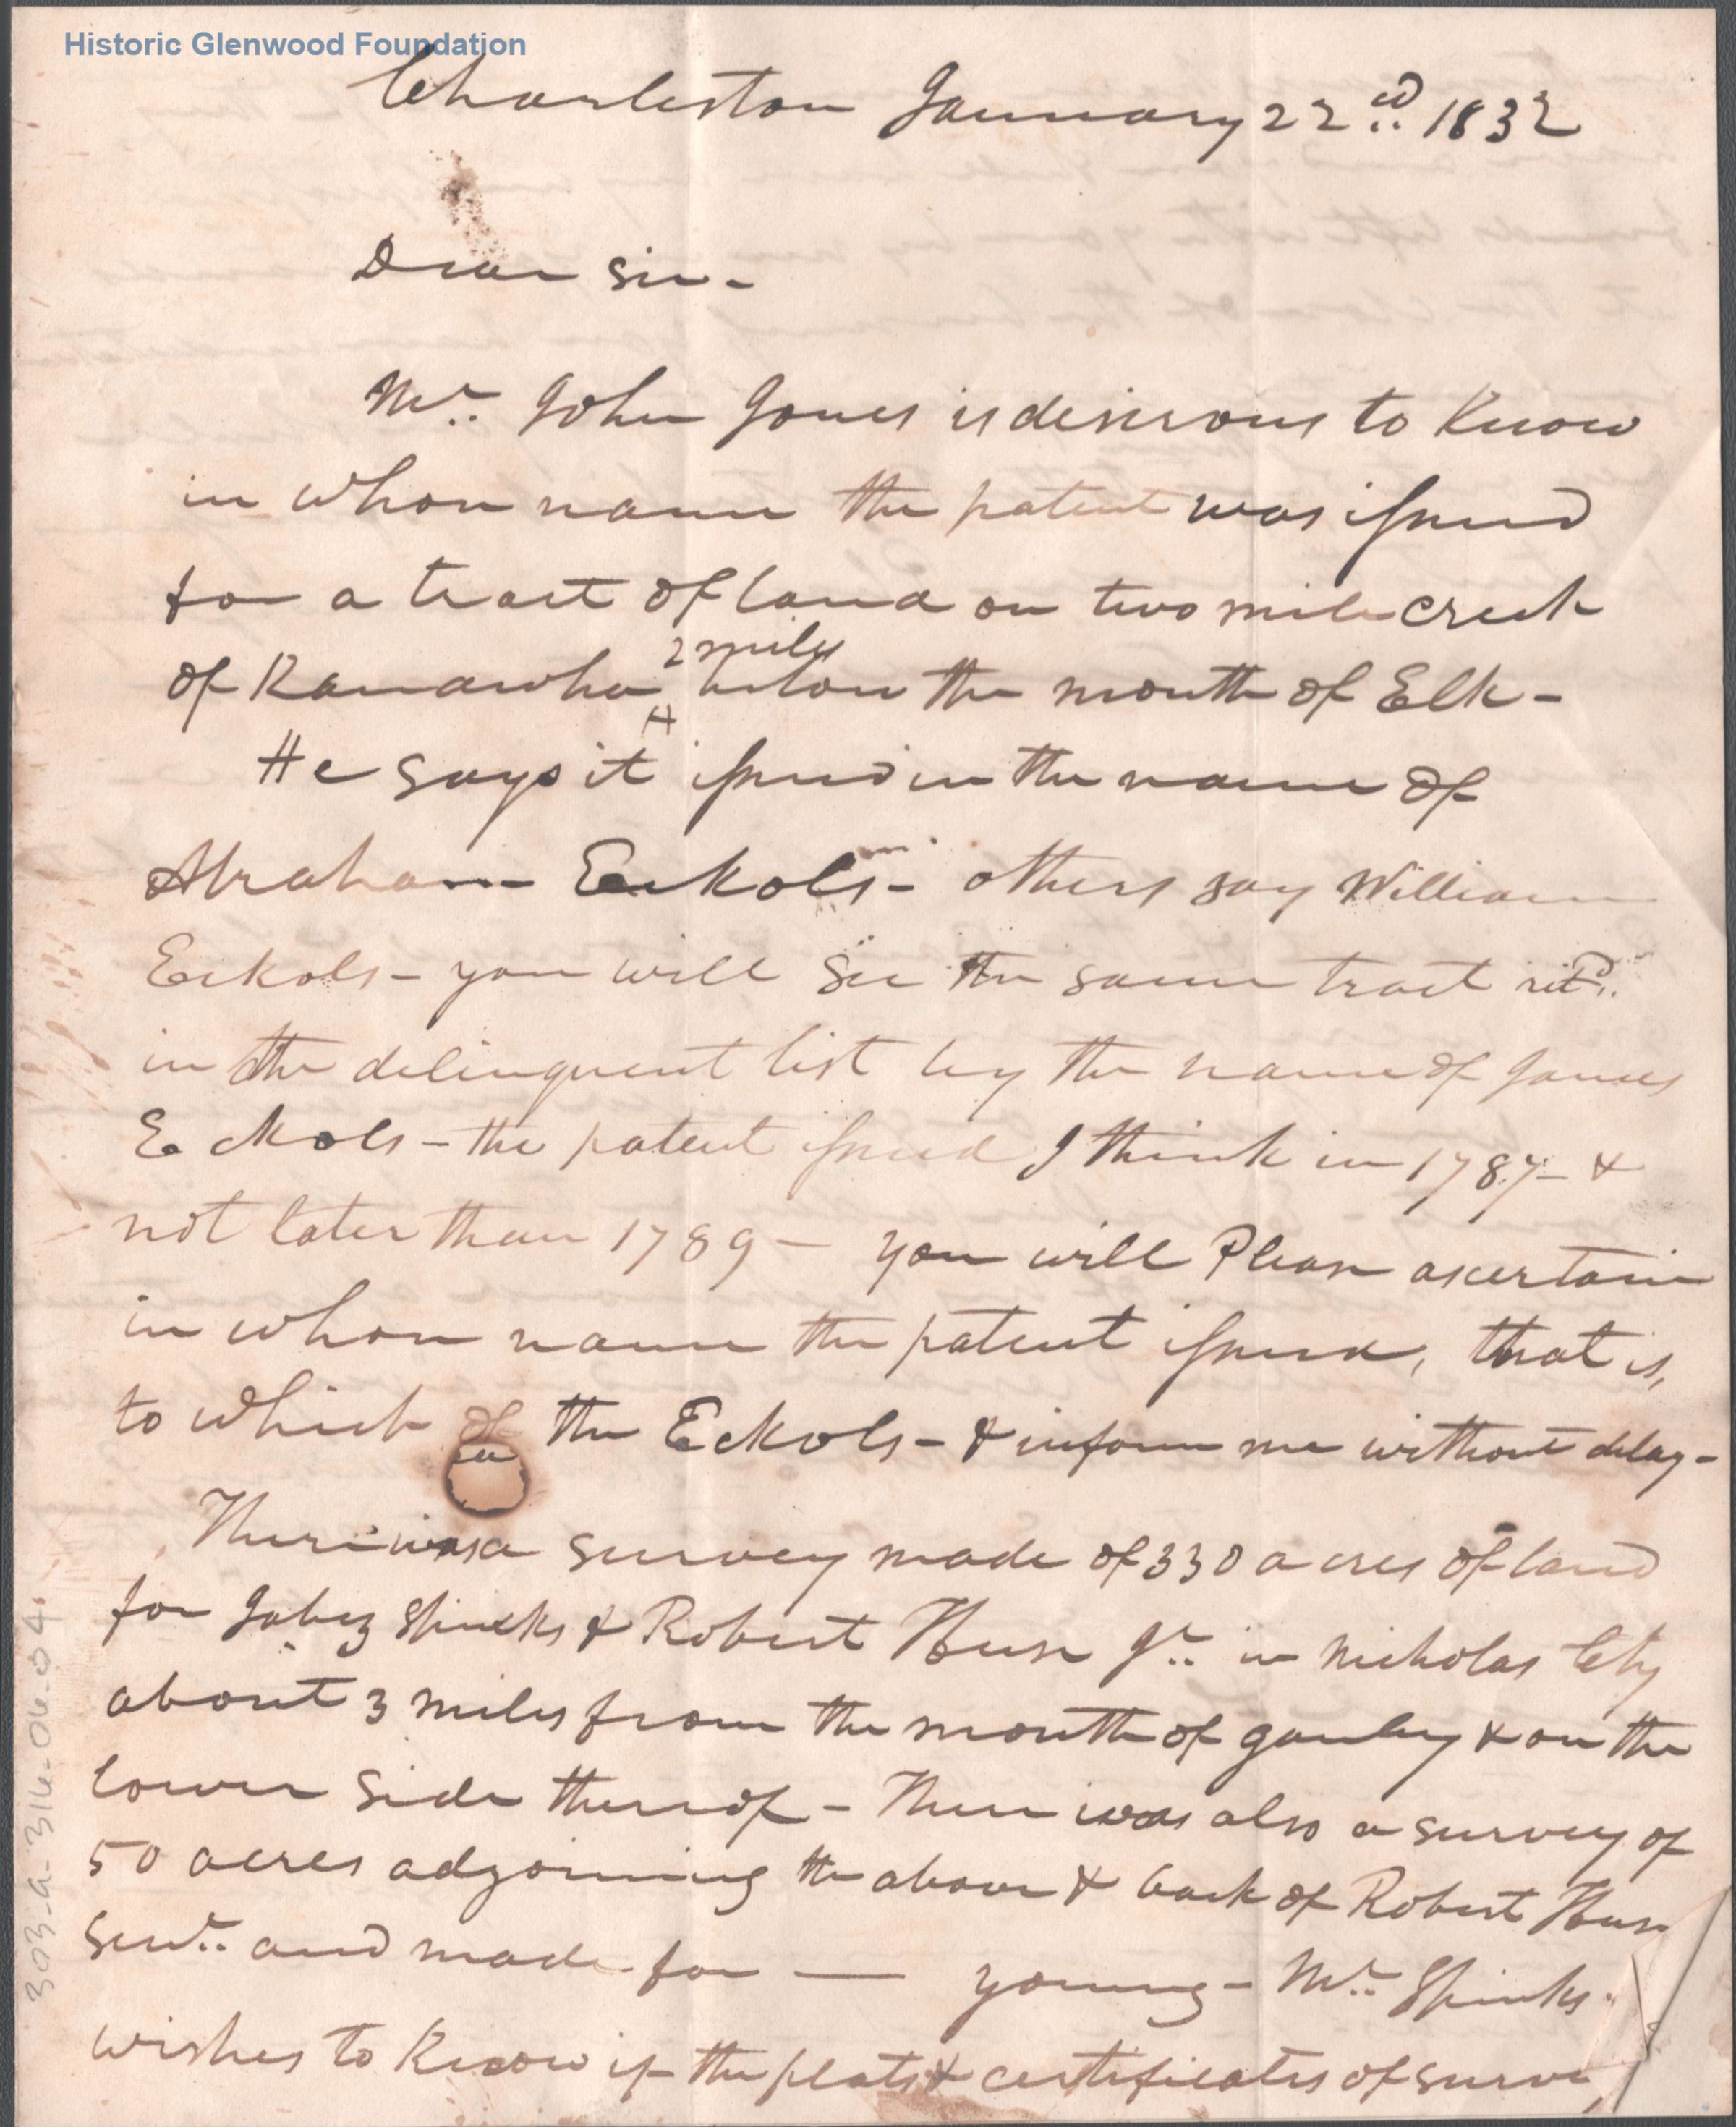 Historic Glenwood Foundation
Charleston January 22d. 1832
Dear Sir -
Mr. John Jones is desirous to Know
in whose name the patent was issued
for a tract of land on two mile creek
of Kanawha 2 miles below the mouth of Elk -
He says it issued in the name of
Abraham Eckols - others say William
Eckols - you will See the same tract retd.
in the delinquent list by the name of James
Eckols - the patent issued I think in 1787 - &
not later than 1789 - you will Please ascertain
in whose name the patent issued, that is,
to which of the Eckols - & inform me without delay -
There was a survey made of 330 acres of land
for Jabez Spinks & Robert Huse Jr. in Nicholas Cty
about 3 miles from the mouth of gauley & on the
lower side thereof - There was also a survey of
50 acres adjoining the above & back of Robert Huse
Senr. and made for — young - Mr. Spinks
wishes to Know if the plats & certificates of survey
303-a-316-06-04